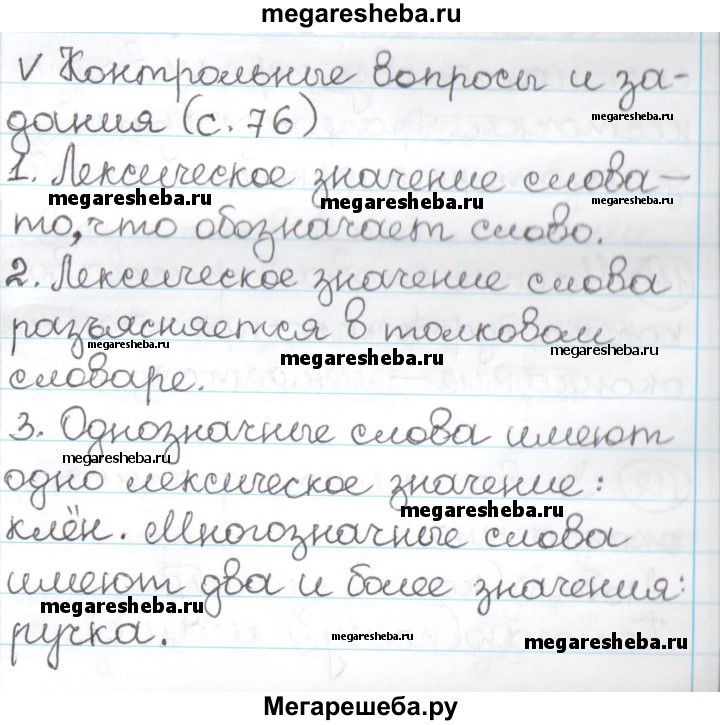 megaresheba.ru
V Контрольные вопросы и за-
megaresheba.ru
megaresheba.ru
дания (с. 76)
1. Лексическое значение слова –
megaresheba.ru
megaresheba.ru
megaresheba.ru
то, что обозначает слово.
2. Лексическое значение слова
разъясняется в толковом
megaresheba.ru
megaresheba.ru
megaresheba.ru
словаре.
3. Однозначные слова имеют
megaresheba.ru
одно лексическое значение:
megaresheba.ru
клён. Многозначные слова
имеют два и более значения:
megaresheba.ru
ручка.
megaresheba.ru
megaresheba.ru
Мегарешеба.ру